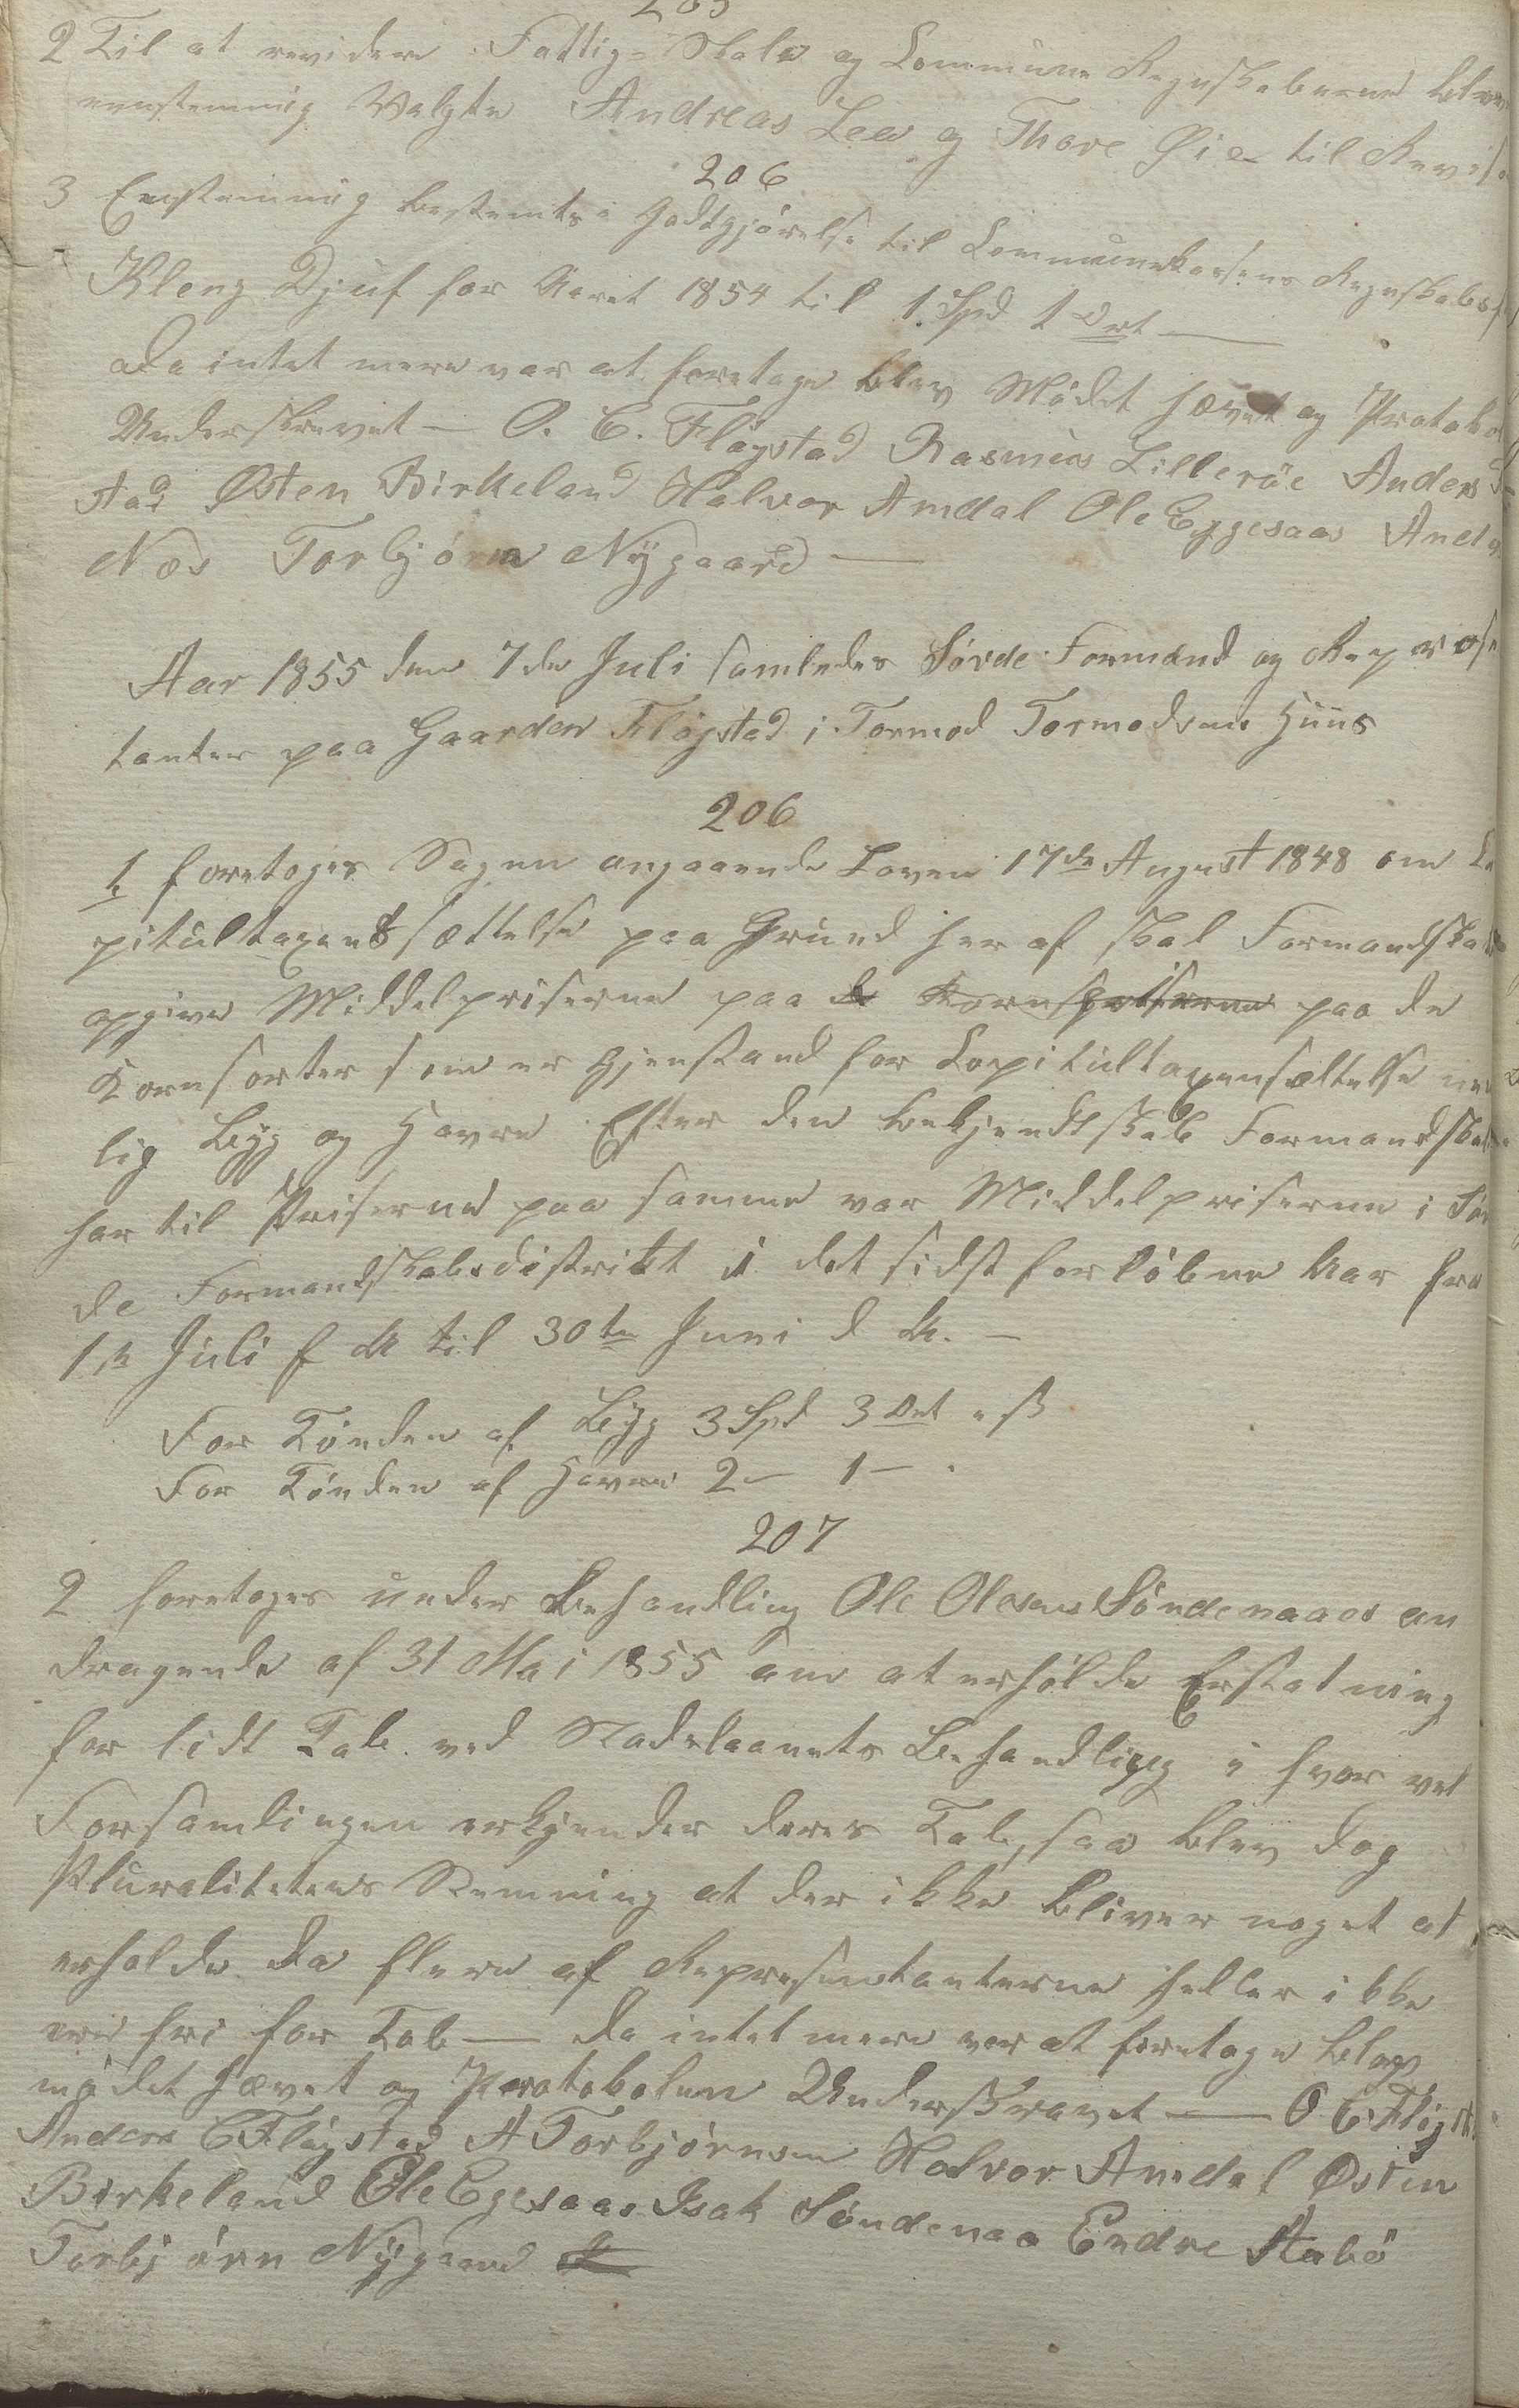 205
2 Til at revidere Fattig- Skole og Commune Regnskaberne blev
eenstemmig Valgte Andreas Lea og Thore Øie til Reviso
206
3 Eenstemmig bestemtes Godtgjørelse til Communekassens Regnskabsf
Kleng Djuf for Aaret 1854 til 1 Spd 1 Ort —
Da intet mere var at foretage blev Mödet hævet og Protokol
Underskrevet — O. E. Flögstad Rasmus Lilleröe Anders
stad Østen Birkeland Halvor Amdal Ole Eggesaas And
Næs Torbjörn Nÿgaard —
Aar 1855 den 7de Juli samledes Sövde Formænd og Repræse
tanter paa Gaarden Flögstad i Tormod Tormodsens Huus
206
1, foretoges Sagen angaaende Loven 17de August 1848 om Ca
pitultaxentsættelse paa Grund her af skal Formandskab
opgive Middelpriserne paa de Kornsorterne paa de
Kornsorter som er Gjenstand for Capitultaxensættelse nem
lig Byg og Havre Efter den bekjendtskab Formandskab
har til Priserne paa samme var Middelpriserne i Söv
de Formandskabsdistrikt i det sidst forløbne Aar fra
1ste Juli f A til 30te Juni d A. —
For Tönden af Byg 3 Spd 3 Ort " ß
For Tönden af Havre 2 — 1 — "
207
2 foretoges under Behandling Ole Olesens Söndenaaes an
dragende af 31 Mai 1855 om at erholde Erstatning
for lidt Tab ved Stadslaanets Behandling i hvor vel
Forsamlingen erkjender deres Tab, saa blev dog
Pluralitetens Stemning at der ikke bliver noget at
erholde da flere af Repræsentanterne heller ikke
ere fri for Tab — Da intet mere var at foretage blev
mödet hævet og Protokolen Underskrevet — O E Flögst
Anders E Flögstad A Torbjörnsen Halvor Amdal Østen
Birkeland Ole Egesaas Isak Söndenaa Endre Stabö
Torbjörn Nÿgaard